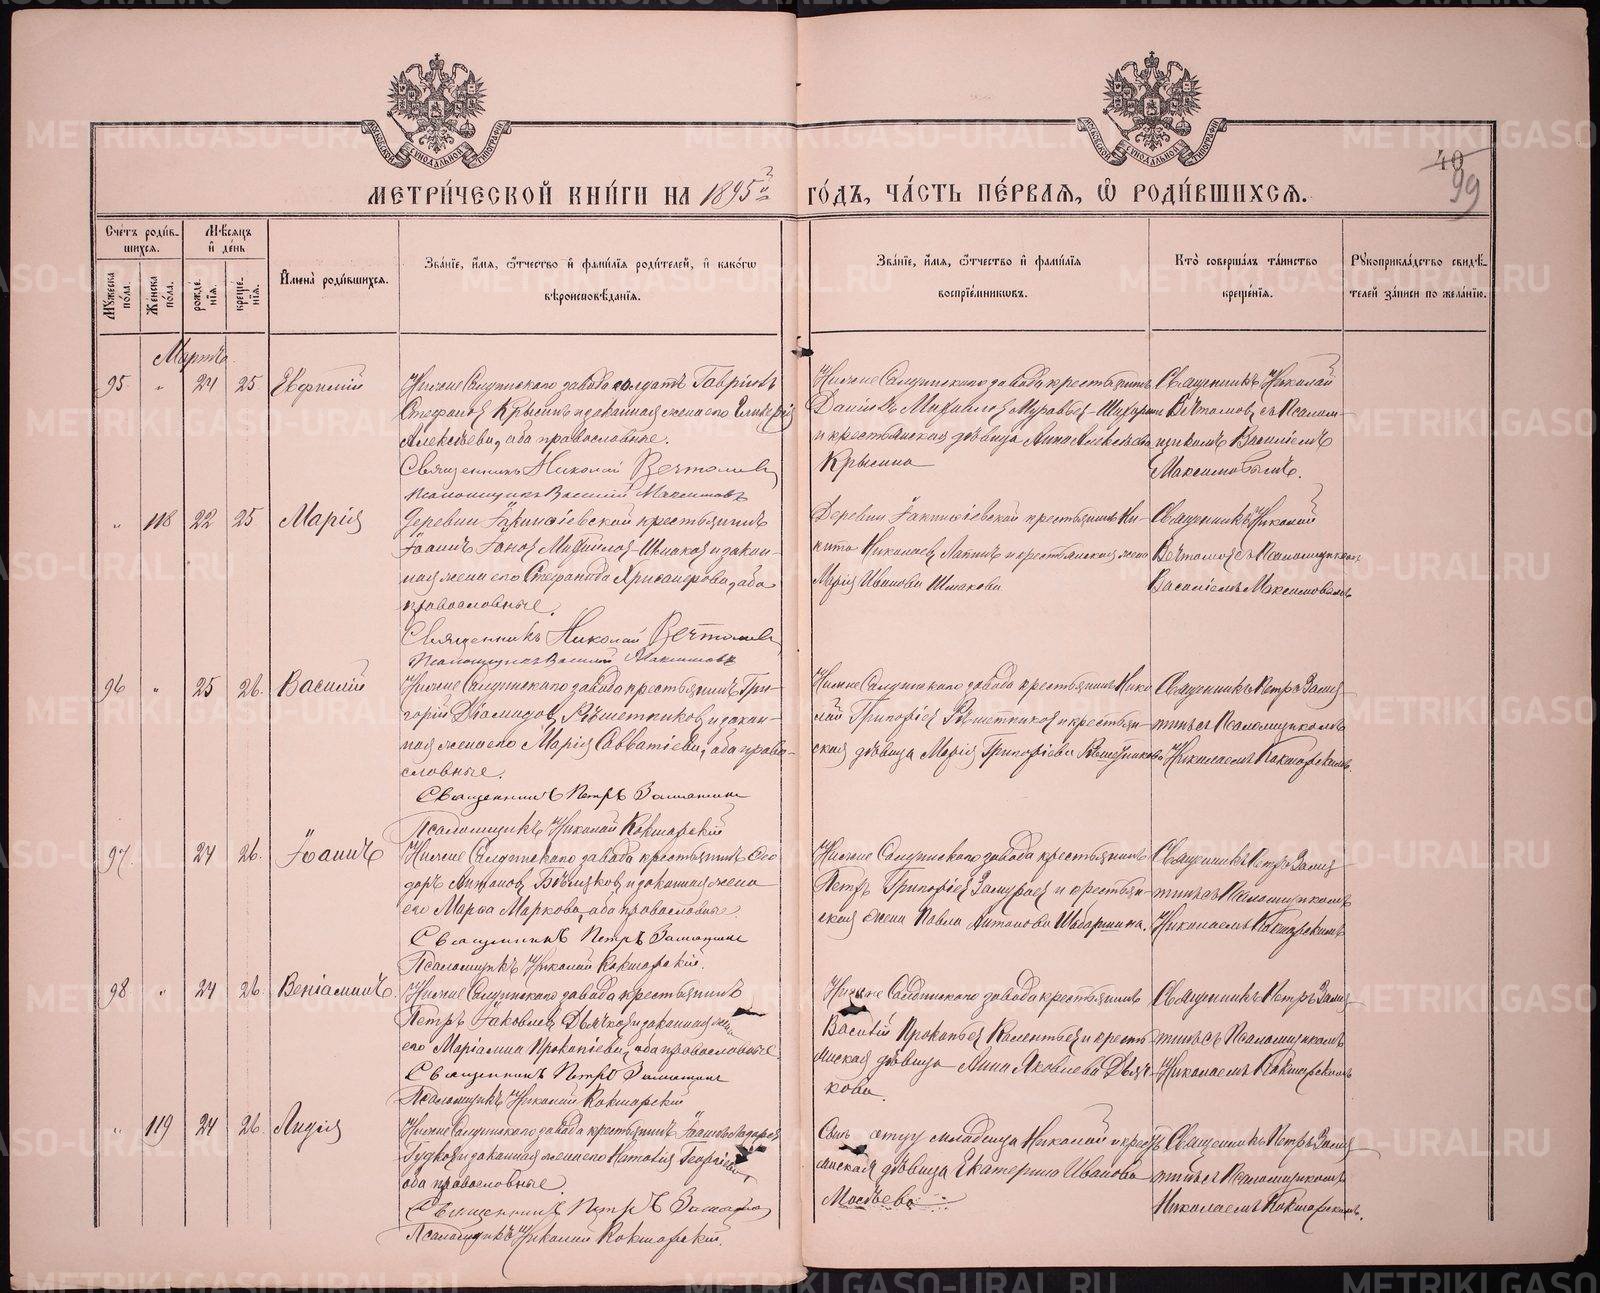 МОСКОВСКОЙ СѴНОДАЛЬНОЙ ТИПОГРАФІИ
МОСКОВСКОЙ СѴНОДАЛЬНОЙ ТИПОГРАФІИ
40
99
МЕТРИ́ЧЕСКОЙ КНИ́ГИ НА 1895й ГО́ДЪ, ЧА́СТЬ ПЕ́РВАѦ, Ѡ҆ РОДИ́ВШИХСѦ.
Сче́тъ роди́в-
шихся.
Мѣ́сяцъ
и҆ де́нь
Му́жеска
по́ла.
Же́нска
по́ла.
рожде́-
нїѧ.
креще́-
нїѧ.
И҆мена̀ роди́вшихся.
Зва́нїе, и҆́мѧ, ѻ҆́тчество и҆ фамѝлїѧ роди́телей, и҆ како́гѡ
вѣроисповѣ́данїѧ.
Зва́нїе, и҆́мѧ, ѻ҆́тчество и҆ фами́лїѧ
воспрїе́мникѡвъ.
Кто̀ соверша́лъ та́инство
креще́нїѧ.
Рꙋкоприкла́дство свидѣ́-
телей за́писи по жела́нїю.
Мартъ
95 " 24 25 Евфимій
Нижне Салдинскаго завода солдатъ Гавріилъ
Стефановъ Крысинъ и законная жена его Гликерія
Алексѣева, оба православные.
Священникъ Николай
Псаломщикъ Василій Максимовъ
Нижне Салдинскаго завода крестьянинъ
Даніилъ Михайловъ
и крестьянская дѣвица Анна Алексѣева
Крысина
Священникъ Николай
съ Псалом-
щикомъ Василіемъ
Максимовымъ.
" 118 22 25 Марія
Деревни крестьянинъ
Іоаннъ
ная жена его Стефанида оба
православные.
Священникъ Николай
Псаломщикъ Василій Максимовъ
Деревни крестьянинъ Ни-
кита Николаевъ Лапинъ и крестьянская жена
Марія Иванова Шмакова
Священникъ Николай
съ Псаломщикомъ
Василіемъ Максимовымъ
96 " 25 26. Василій
Нижне Салдинскаго завода крестьянинъ Гри-
горій Діомидовъ Рѣшетниковъ и закон-
ная жена его Марія Савватіева, оба право-
славные.
Священникъ Петръ Замятинъ
Псаломщикъ Николай Кокшарскій
Нижне Салдинскаго завода крестьянинъ Нико-
лай Григорьевъ Рѣшетниковъ и крестьян-
ская дѣвица Марія Григоріева Рѣшетникова
Священникъ Петръ Замя-
тинъ съ Псаломщикомъ
Николаемъ Кокшарскимъ.
97. " 24 26. Іоаннъ
Нижне Салдинскаго завода крестьянинъ Ѳео-
доръ Антоновъ и законная жена
его Марѳа Маркова, оба православные.
Священникъ Петръ Замятинъ
Псаломщикъ Николай Кокшарскій.
Нижне Салдинскаго завода крестьянинъ
Петръ Григорьевъ и крестьян-
ская жена Павла Антонова Шабаршина.
Священникъ Петръ Замя-
тинъ съ Псаломщикомъ
Николаемъ Кокшарскимъ
98 " 24 26. Веніаминъ.
Нижне Салдинскаго завода крестьянинъ
Петръ Іаковлевъ Дьячковъ и законная жена
его Маріамна Прокопіева, оба православные.
Священникъ Петръ Замятинъ
Псаломщикъ Николай Кокшарскій
Нижне Салдинскаго завода крестьянинъ
Василій Прокопьевъ и кресть-
янская дѣвица Анна Яковлева Дьяч-
кова.
Священникъ Петръ Замя-
тинъ съ Псаломщикомъ
Николаемъ Кокшарскимъ
" 119 24 26. Лидія
Нижне Салдинскаго завода крестьянинъ Іоаннъ Лазаревъ
Гудковъ и законная жена его Наталія Георгіева,
оба православные.
Священникъ Петръ Замятинъ
Псаломщикъ Николай Кокшарскій.
отцу младенца Николай и кресть-
янская дѣвица Екатерина Иванова
Мосѣева
Священникъ Петръ Замя-
тинъ съ Псаломщикомъ
Николаемъ Кокшарскимъ.
METRIKI.GASO-URAL.RU